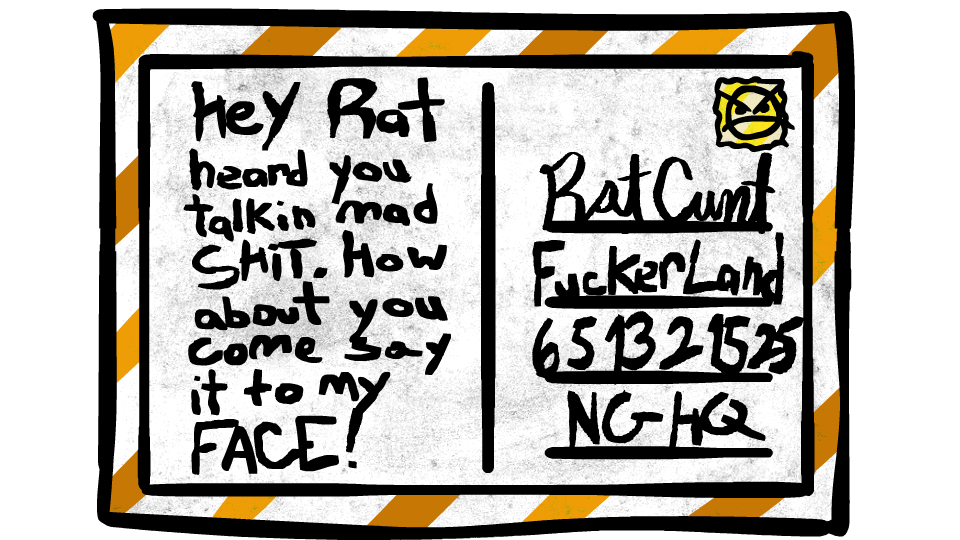 Hey Rat
heard you
talkin mad
SHiT. How
about you
come say
it to my
FACE!
Rat Cunt
FuckerLand
651321525
NG-HQ